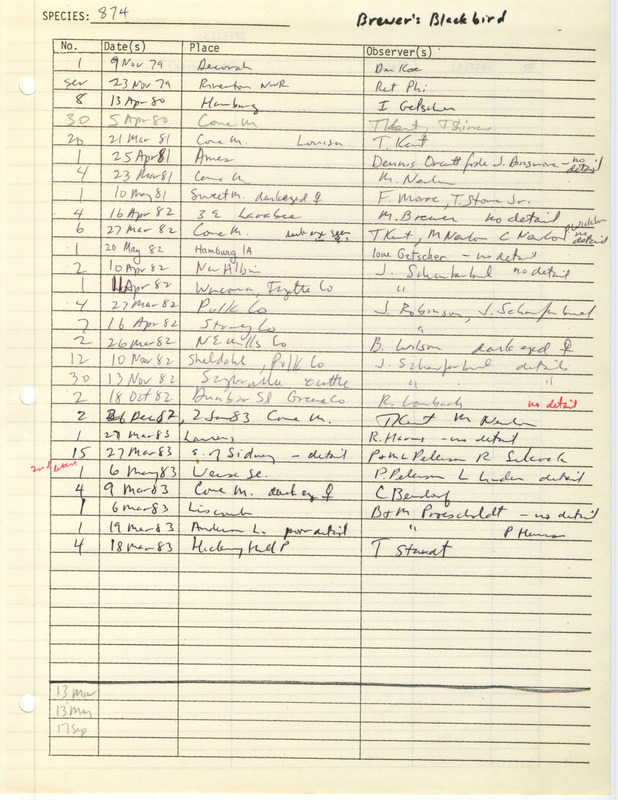 SPECIES: 874 Brewer's Blackbird
No. Date(s) Place Observer(s)
1 9 Nov 79 Decorah Dar Koe
ser 23 Nov 79 Riverton NWR Ret Phi
8 13 Apr 80 Hamburg I Getscher
30 5 Apr 80 Cone M. TKent, TShires
20 21 Mar 81 Cone M. Louisa T. Kent
1 25 Apr 81 Ames Dennis Orcutt fide J. no detail
4 23 Mar 81 Cone M. M. Newlon
1 10 May 81 Sweet M. dark eyed ♀ F. Moore, T. Stone Jr.
4 16 Apr 82 3 E Larrabee M. Brewer no detail
6 27 Mar 82 Cone M. dark eye seen TKent, M Newlon C Newlon no detail
1 20 May 82 Hamburg IA Ione Getscher - no detail
2 10 Apr 82 New Albin J. Schaufenbuel no detail
1 11 Apr 82 Waucoma, Fayette Co "
4 27 Mar 82 Polk Co J. Robinson, J. Schaufenbuel
7 16 Apr 82 Story Co "
2 26 Mar 82 NE Mills Co B. Wilson dark eyed ♀
12 10 Nov 82 Sheldahl, Polk Co J. Schaufenbuel details
30 13 Nov 82 cattle " "
2 18 Oct 82 Dunbar Sl Greene Co R. no detail
2 26 Dec 82, 2 Jan 83 Cone M. TKent M Newlon
1 27 Mar 83 Laurens R. Harms - no detail
15 27 Mar 83 S. of Sidney - detail P+MC Petersen R Silcock
1 6 May 83 Weise Sl. P. Petersen L Linder detail
4 9 Mar 83 Cone M. dark eye ♀ C Bendorf
1 6 Mar 83 Liscomb B+M Proescholdt - no detail
1 19 Mar 83 Anderson L. poor detail " P Harms
4 18 Mar 83 Hickory Hill P T Staudt
13 Mar
13 May
17 Sep